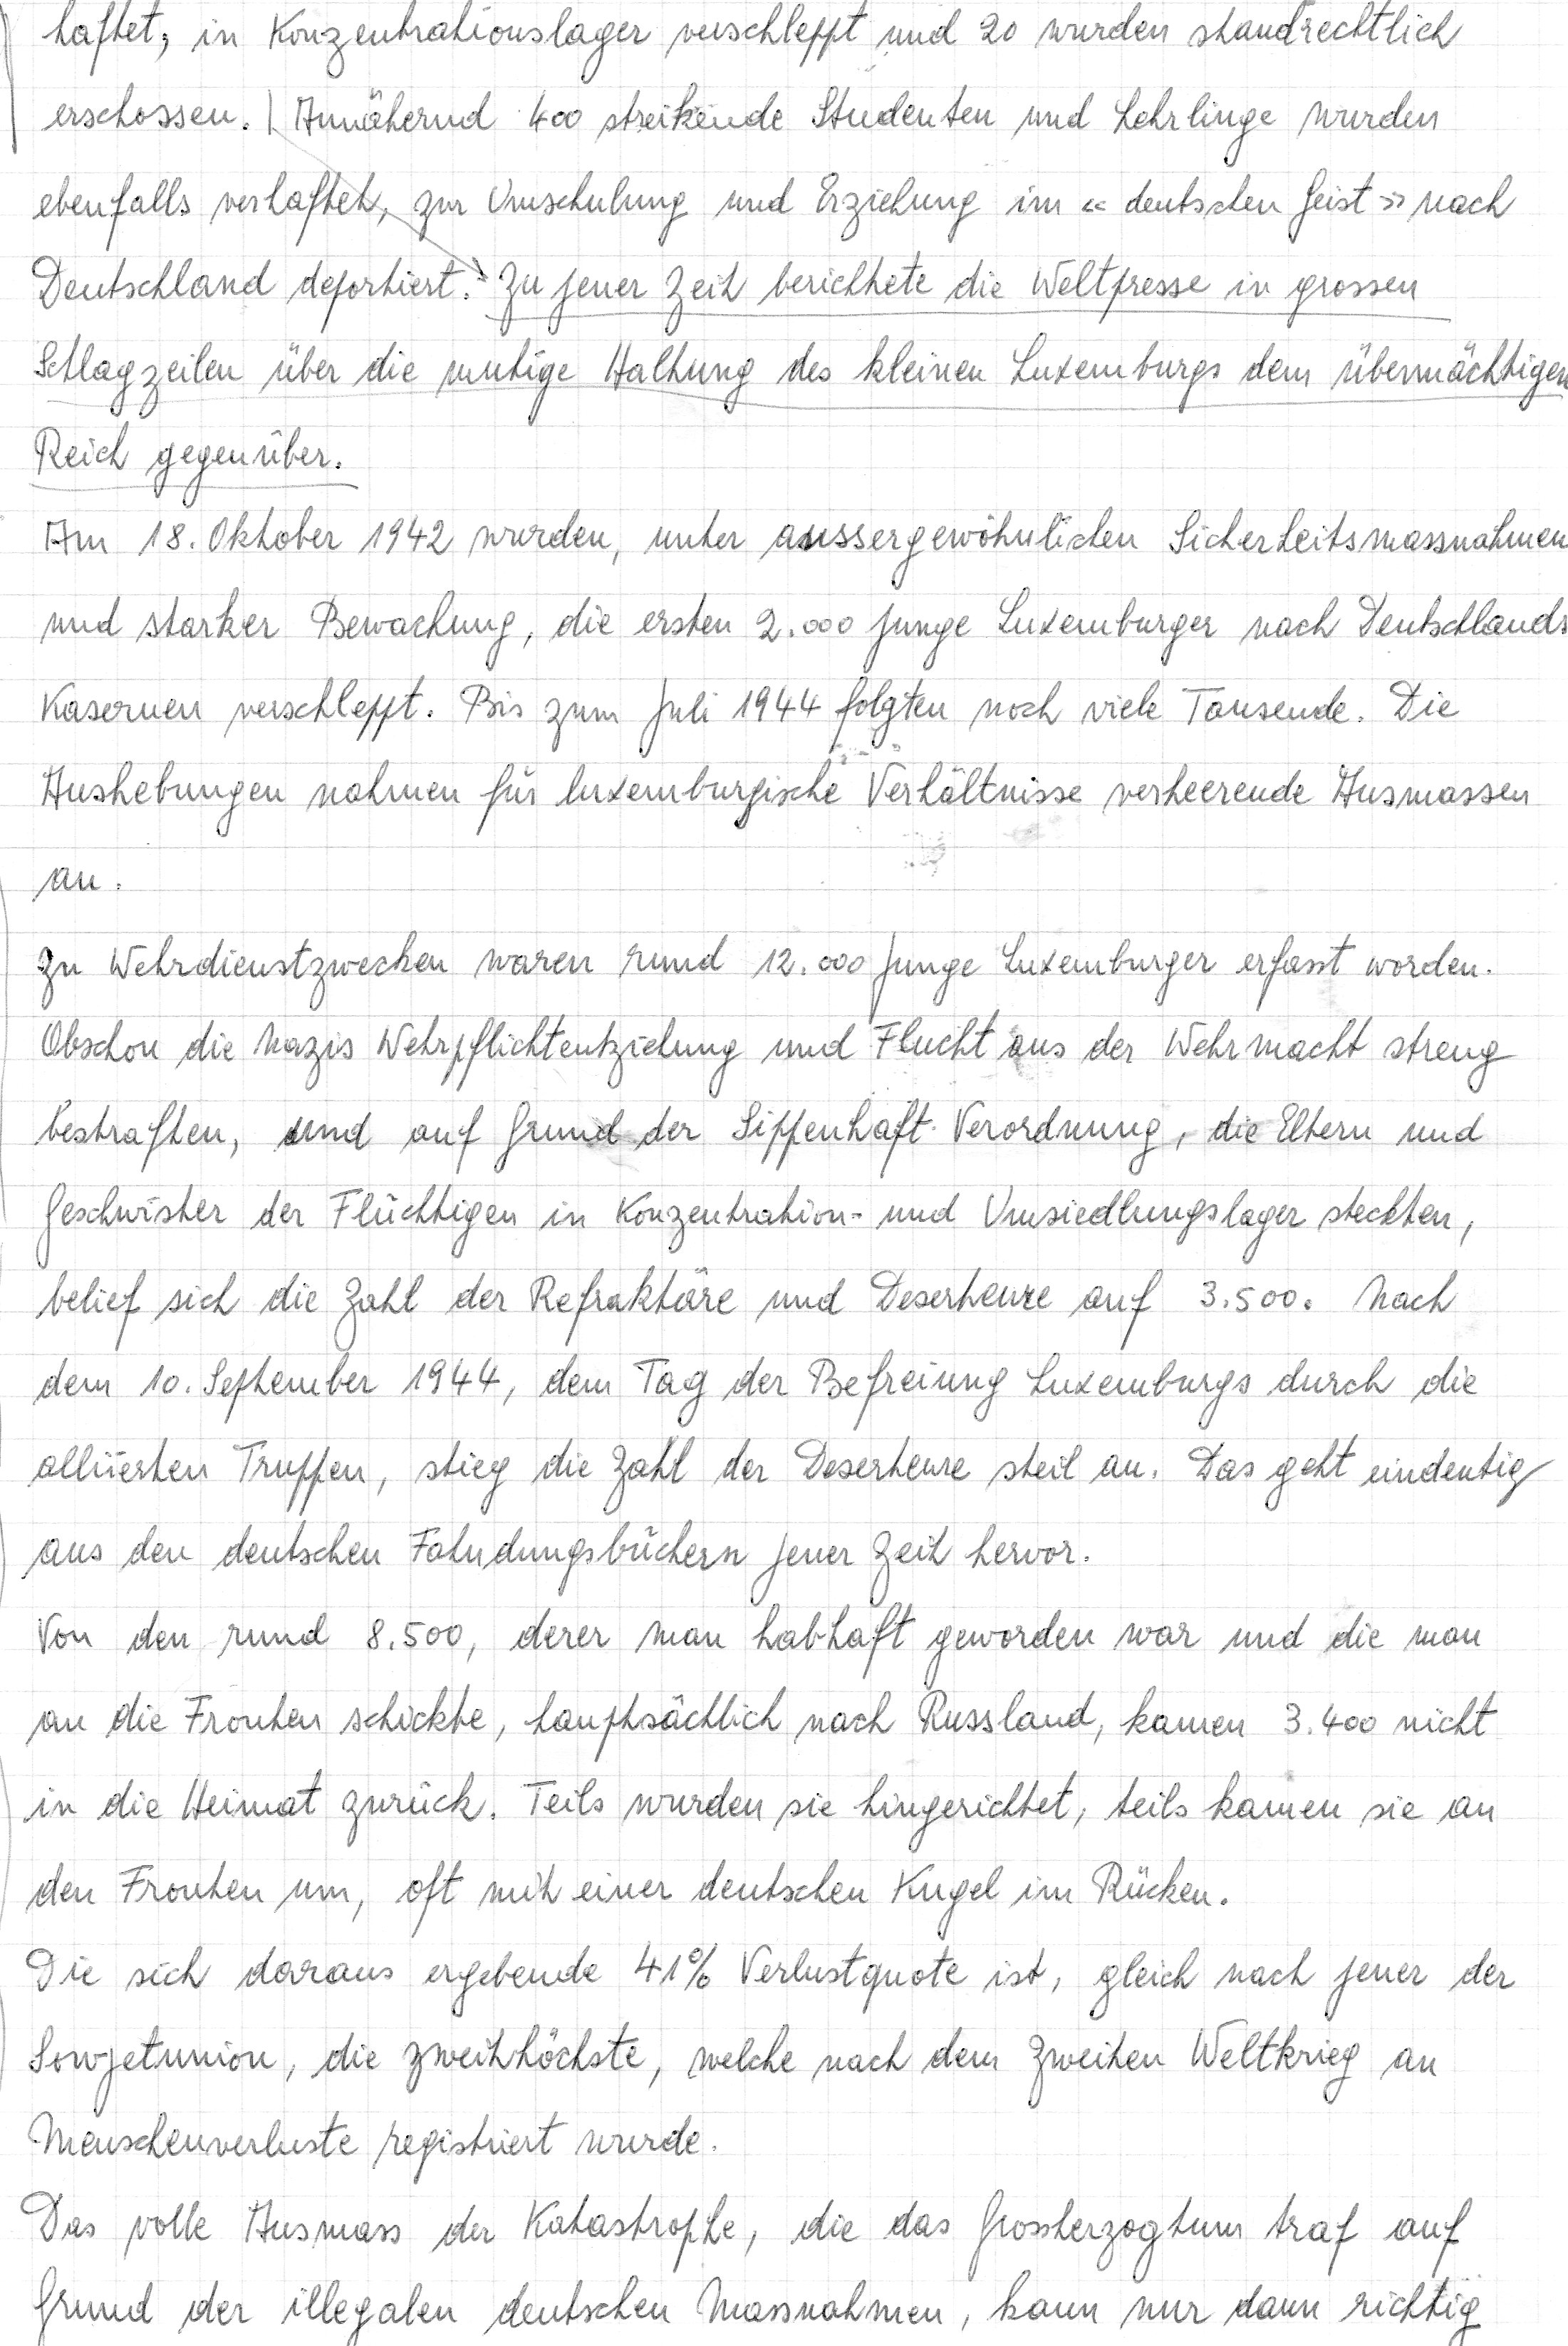 haftet, in Konzentrationslager verschleppt und 20 wurden standrechtlich
erschossen. | Annähernd 400 streikende Studenten und Lehrlinge wurden
ebenfalls verhaftet, zur Umschulung und Erziehung im « deutschen Geist » nach
Deutschland deportiert. Zu jener Zeit berichtete die Weltpresse in grossen
Schlagzeilen über die mutige Haltung des kleinen Luxemburgs dem übermächtigen
Reich gegenüber.
Am 18. Oktober 1942 wurden, unter aussergewöhnlichen Sicherheitsmassnahmen
und starker Bewachung, die ersten 2.000 junge Luxemburger nach Deutschlands
Kasernen verschleppt. Bis zum Juli 1944 folgten noch viele Tausende. Die
Aushebungen nahmen für luxemburgische Verhältnisse verheerende Ausmassen
an.
Zu Wehrdienstzwecken waren rund 12.000 junge Luxemburger erfasst worden.
Obschon die Nazis Wehrpflichtentziehung und Flucht aus der Wehrmacht streng
bestraften, und auf Grund der Sippenhaft-Verordnung, die Eltern und
Geschwister der Flüchtigen in Konzentration- und Umsiedlungslager steckten,
belief sich die Zahl der Refraktäre und Deserteure auf 3.500. Nach
dem 10. September 1944, dem Tag der Befreiung Luxemburgs durch die
alliierten Truppen, stieg die Zahl der Deserteure steil an. Das geht eindeutig
aus den deutschen Fahndungsbüchern jener Zeit hervor.
Von den rund 8.500, derer man habhaft geworden war und die man
an die Fronten schickte, hauptsächlich nach Russland, kamen 3.400 nicht
in die Heimat zurück. Teils wurden sie hingerichtet, teils kamen sie an
den Fronten um, oft mit einer deutschen Kugel im Rücken.
Die sich daraus ergebende 41% Verlustquote ist, gleich nach jener der
Sowjetunion, die zweithöchste, welche nach dem zweiten Weltkrieg an
Menschenverluste registriert wurde.
Das volle Ausmass der Katastrophe, die das Grossherzogtum traf auf
Grund der illegalen deutschen Massnahmen, kann nur dann richtig